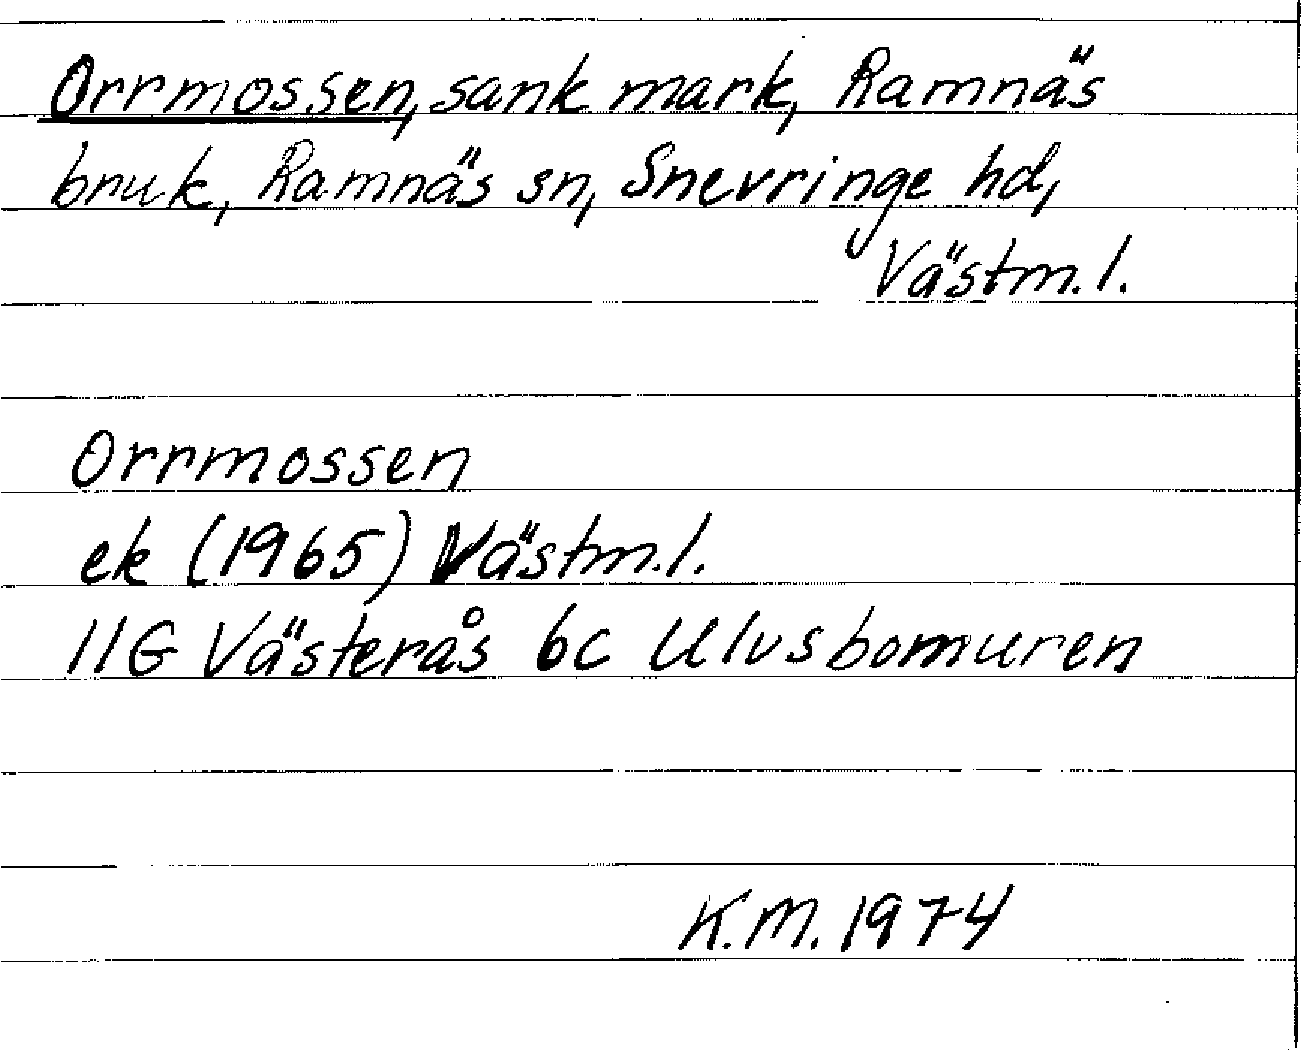 Orrmossen, sank mark, Ramnäs
bruk, Ramnäs sn, Snevringe hd,
Västm.l.
Orrmossen
ek (1965) Västm.l.
11G Västerås 6c Ulvsbomuren
K.M. 1974